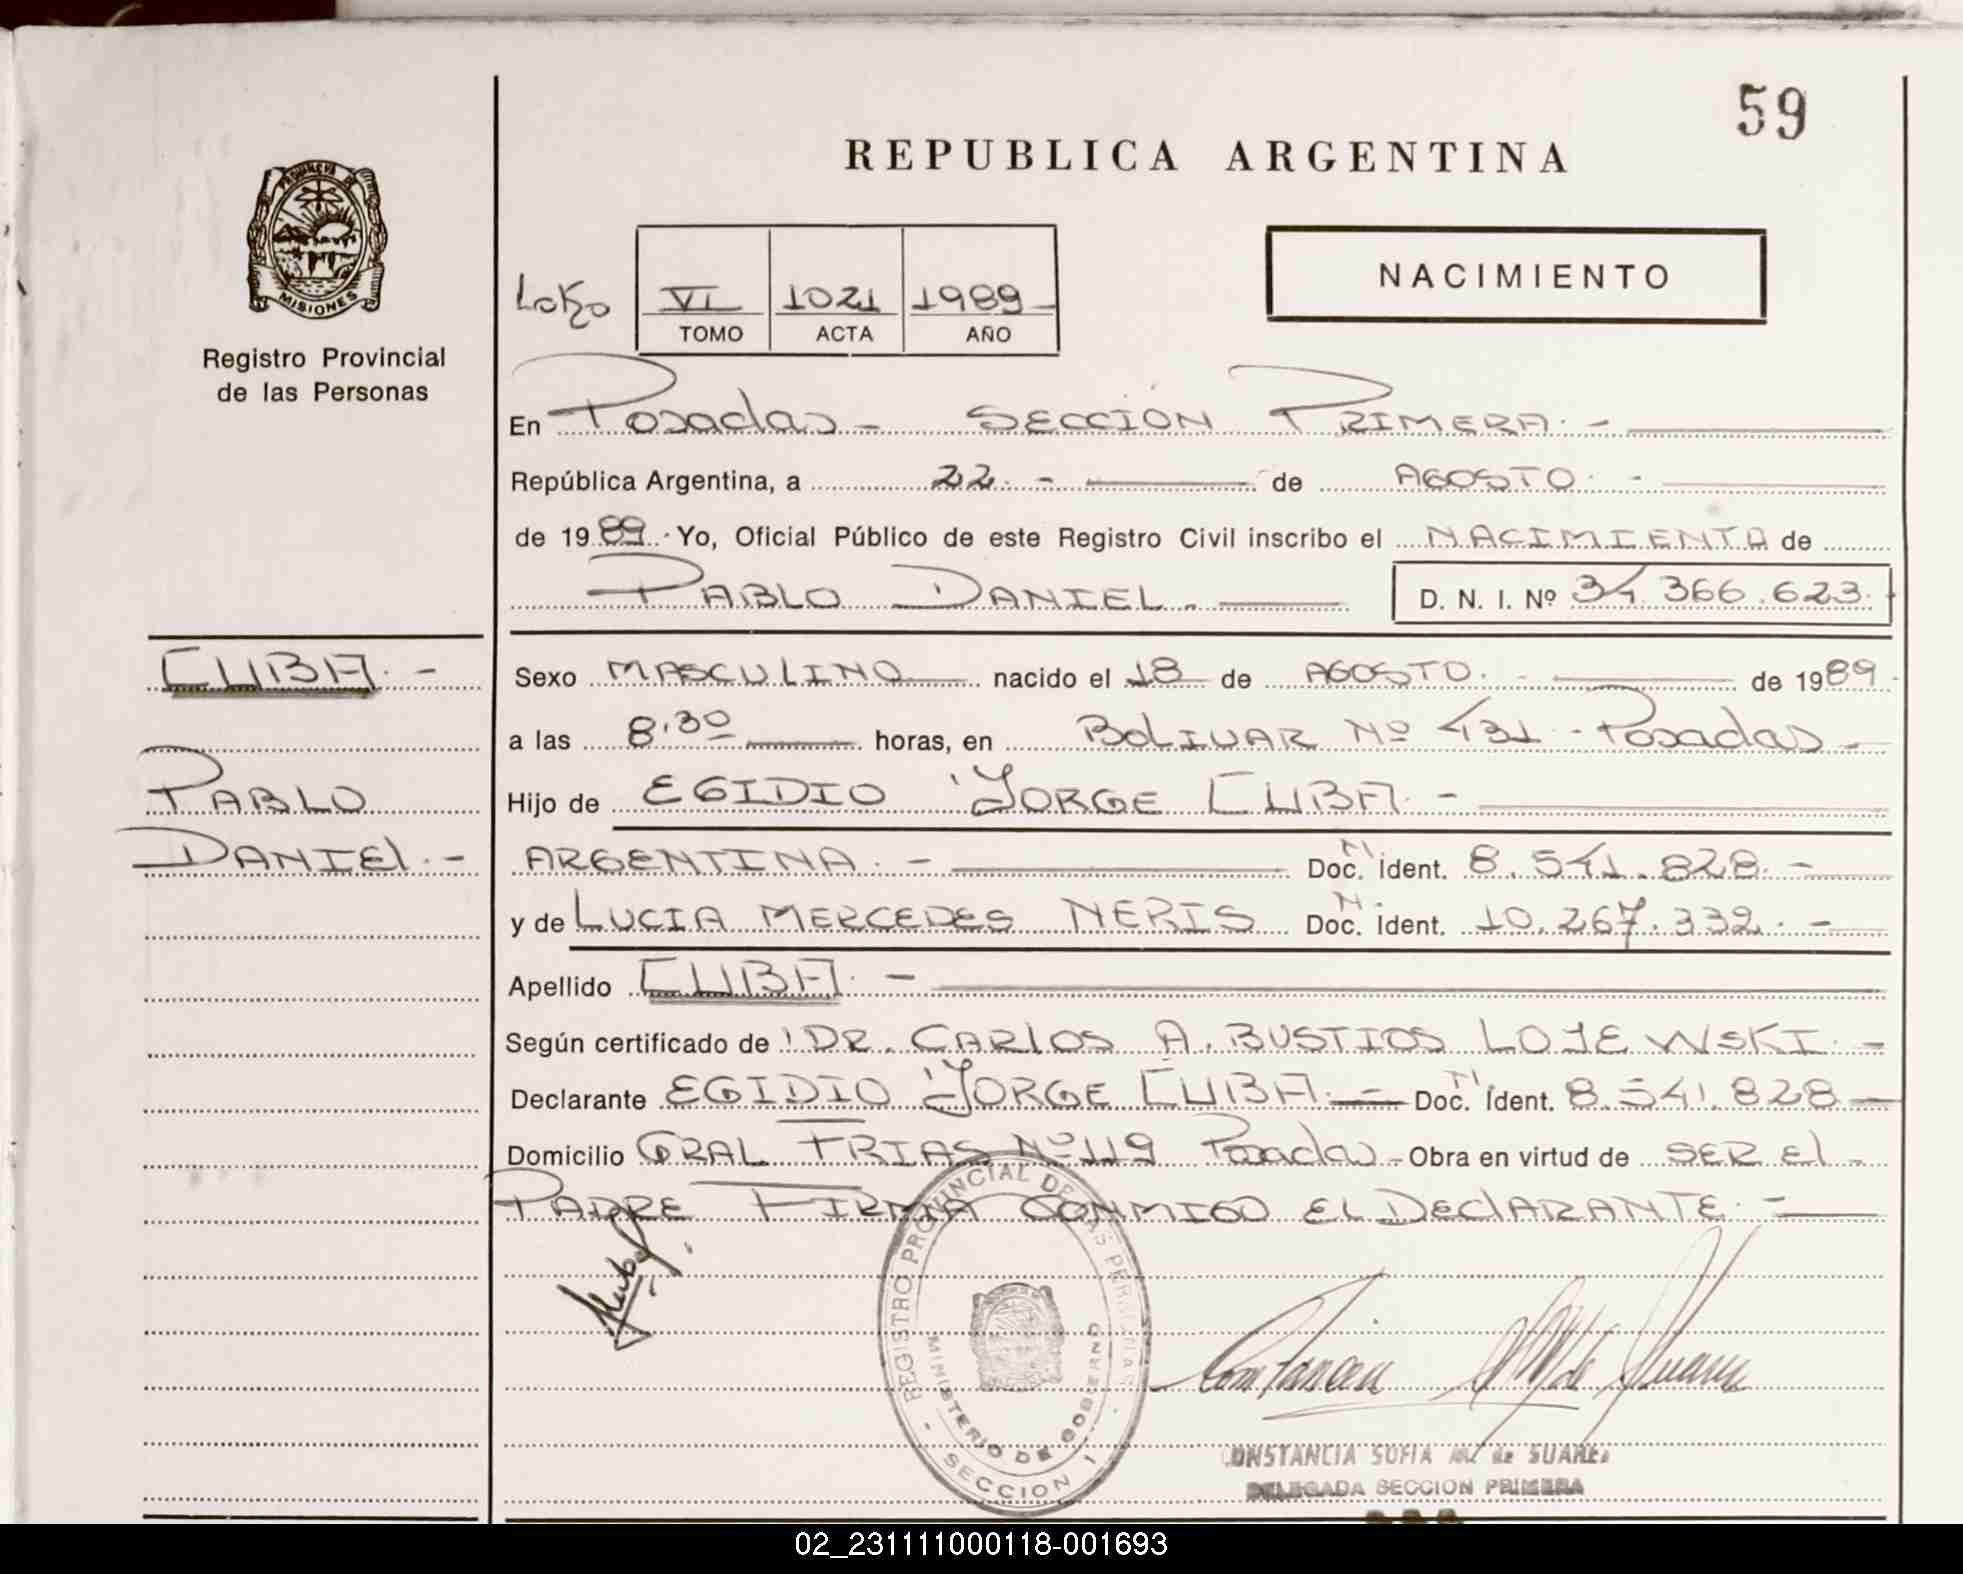 59
REPUBLICA ARGENTINA
PROVINCIA DE
MISIONES
Registro Provincial
de las Personas
VI 1021 1989
TOMO ACTA AÑO
NACIMIENTO
En Posadas - SECCION PRIMERA. -
República Argentina, a 22. - de AGOSTO. -
de 1989. Yo, Oficial Público de este Registro Civil inscribo el NACIMIENTO de
PABLO DANIEL. D. N. I. Nº 34.366.623.
CUBA. -
PABLO
DANIEL. -
Sexo MASCULINO nacido el 18 de AGOSTO. - de 1989.
a las 8.30 horas, en BOLIVAR Nº 431 - Posadas -
Hijo de EGIDIO JORGE CUBA. -
ARGENTINA. - Doc. N. Ident. 8.541.828. -
y de LUCIA MERCEDES NERIS Doc. N. Ident. 10.267.332. -
Apellido CUBA. -
Según certificado de DR. CARLOS A. BUSTIOS LOJEWSKI. -
Declarante EGIDIO JORGE CUBA. - Doc. N. Ident. 8.541.828 -
Domicilio GRAL FRIAS Nº 119 Posadas - Obra en virtud de SER El -
PADRE FIRMA CONMIGO EL DEClARANTE. -
REGISTRO PROVINCIAL DE LAS PERSONAS
MINISTERIO DE GOBIERNO
- SECCION 1 -
CONSTANCIA SOFIA M. de SUAREZ
DELEGADA SECCION PRIMERA
02_231111000118-001693